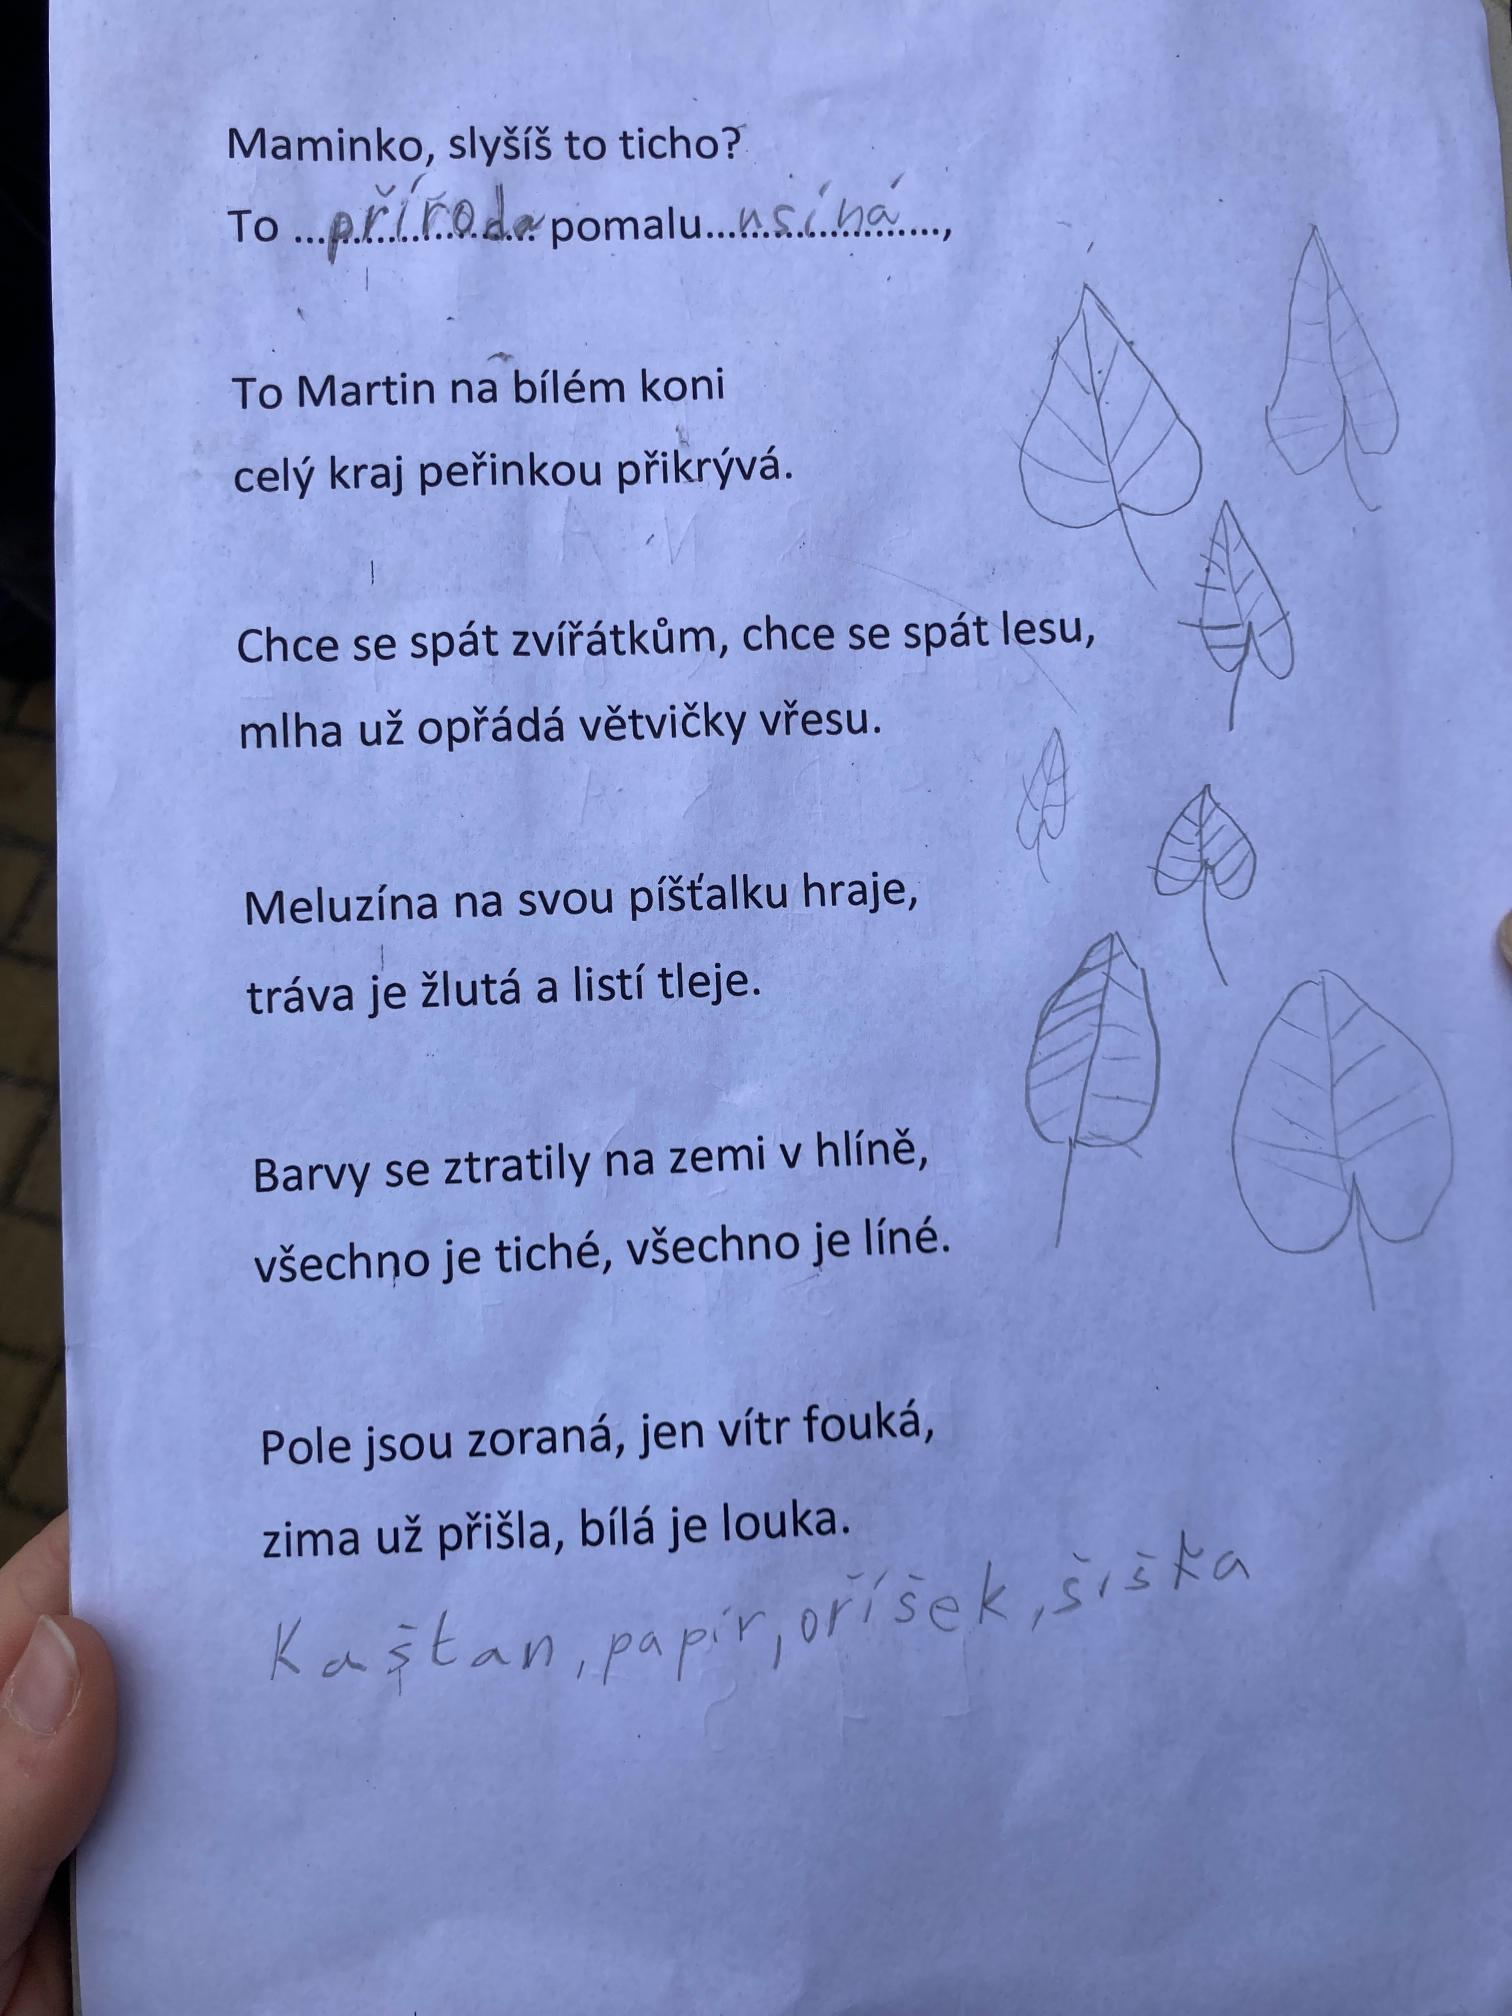 Maminko, slyšíš to ticho?
To ...příroda... pomalu...usíná...,
To Martin na bílém koni
celý kraj peřinkou přikrývá.
Chce se spát zvířátkům, chce se spát lesu,
mlha už opřádá větvičky vřesu.
Meluzína na svou píšťalku hraje,
tráva je žlutá a listí tleje.
Barvy se ztratily na zemi v hlíně,
všechno je tiché, všechno je líné.
Pole jsou zoraná, jen vítr fouká,
zima už přišla, bílá je louka.
Kaštan, papír, oříšek, šiška